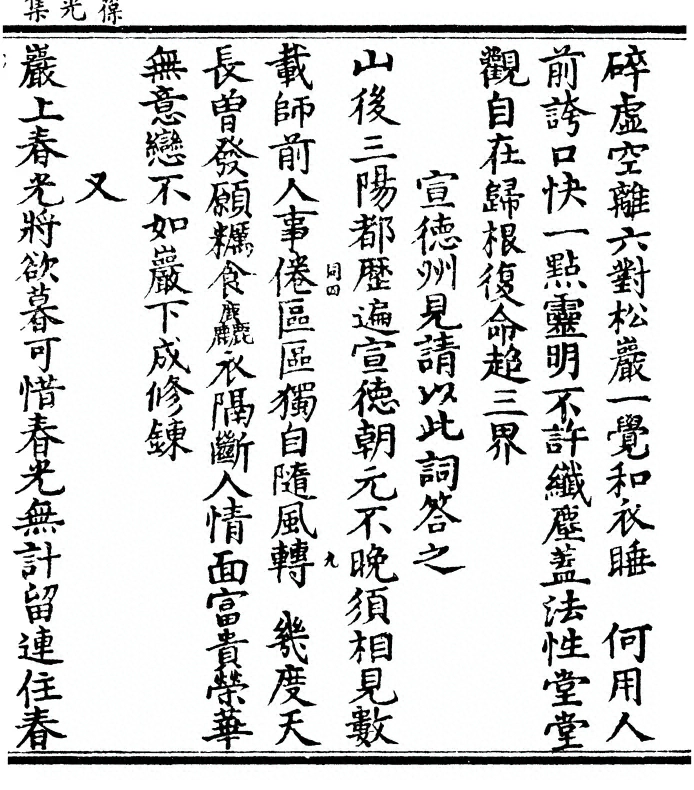 碎虛空離六對松巖一覺和衣睡　何用人
前誇口快一點靈明不許纖塵蓋法性堂堂
觀自在歸根復命超三界
宣德州見請以此詞答之
山後三陽都歷遍宣德朝元不晚須相見數
同四
九
載師前人事倦區區獨自隨風轉　幾度天
長曾發願糲食麤衣隔斷人情面富貴榮華
無意戀不如巖下成修鍊
又
巖上春光將欲暮可惜春光無計留連住春
葆光集